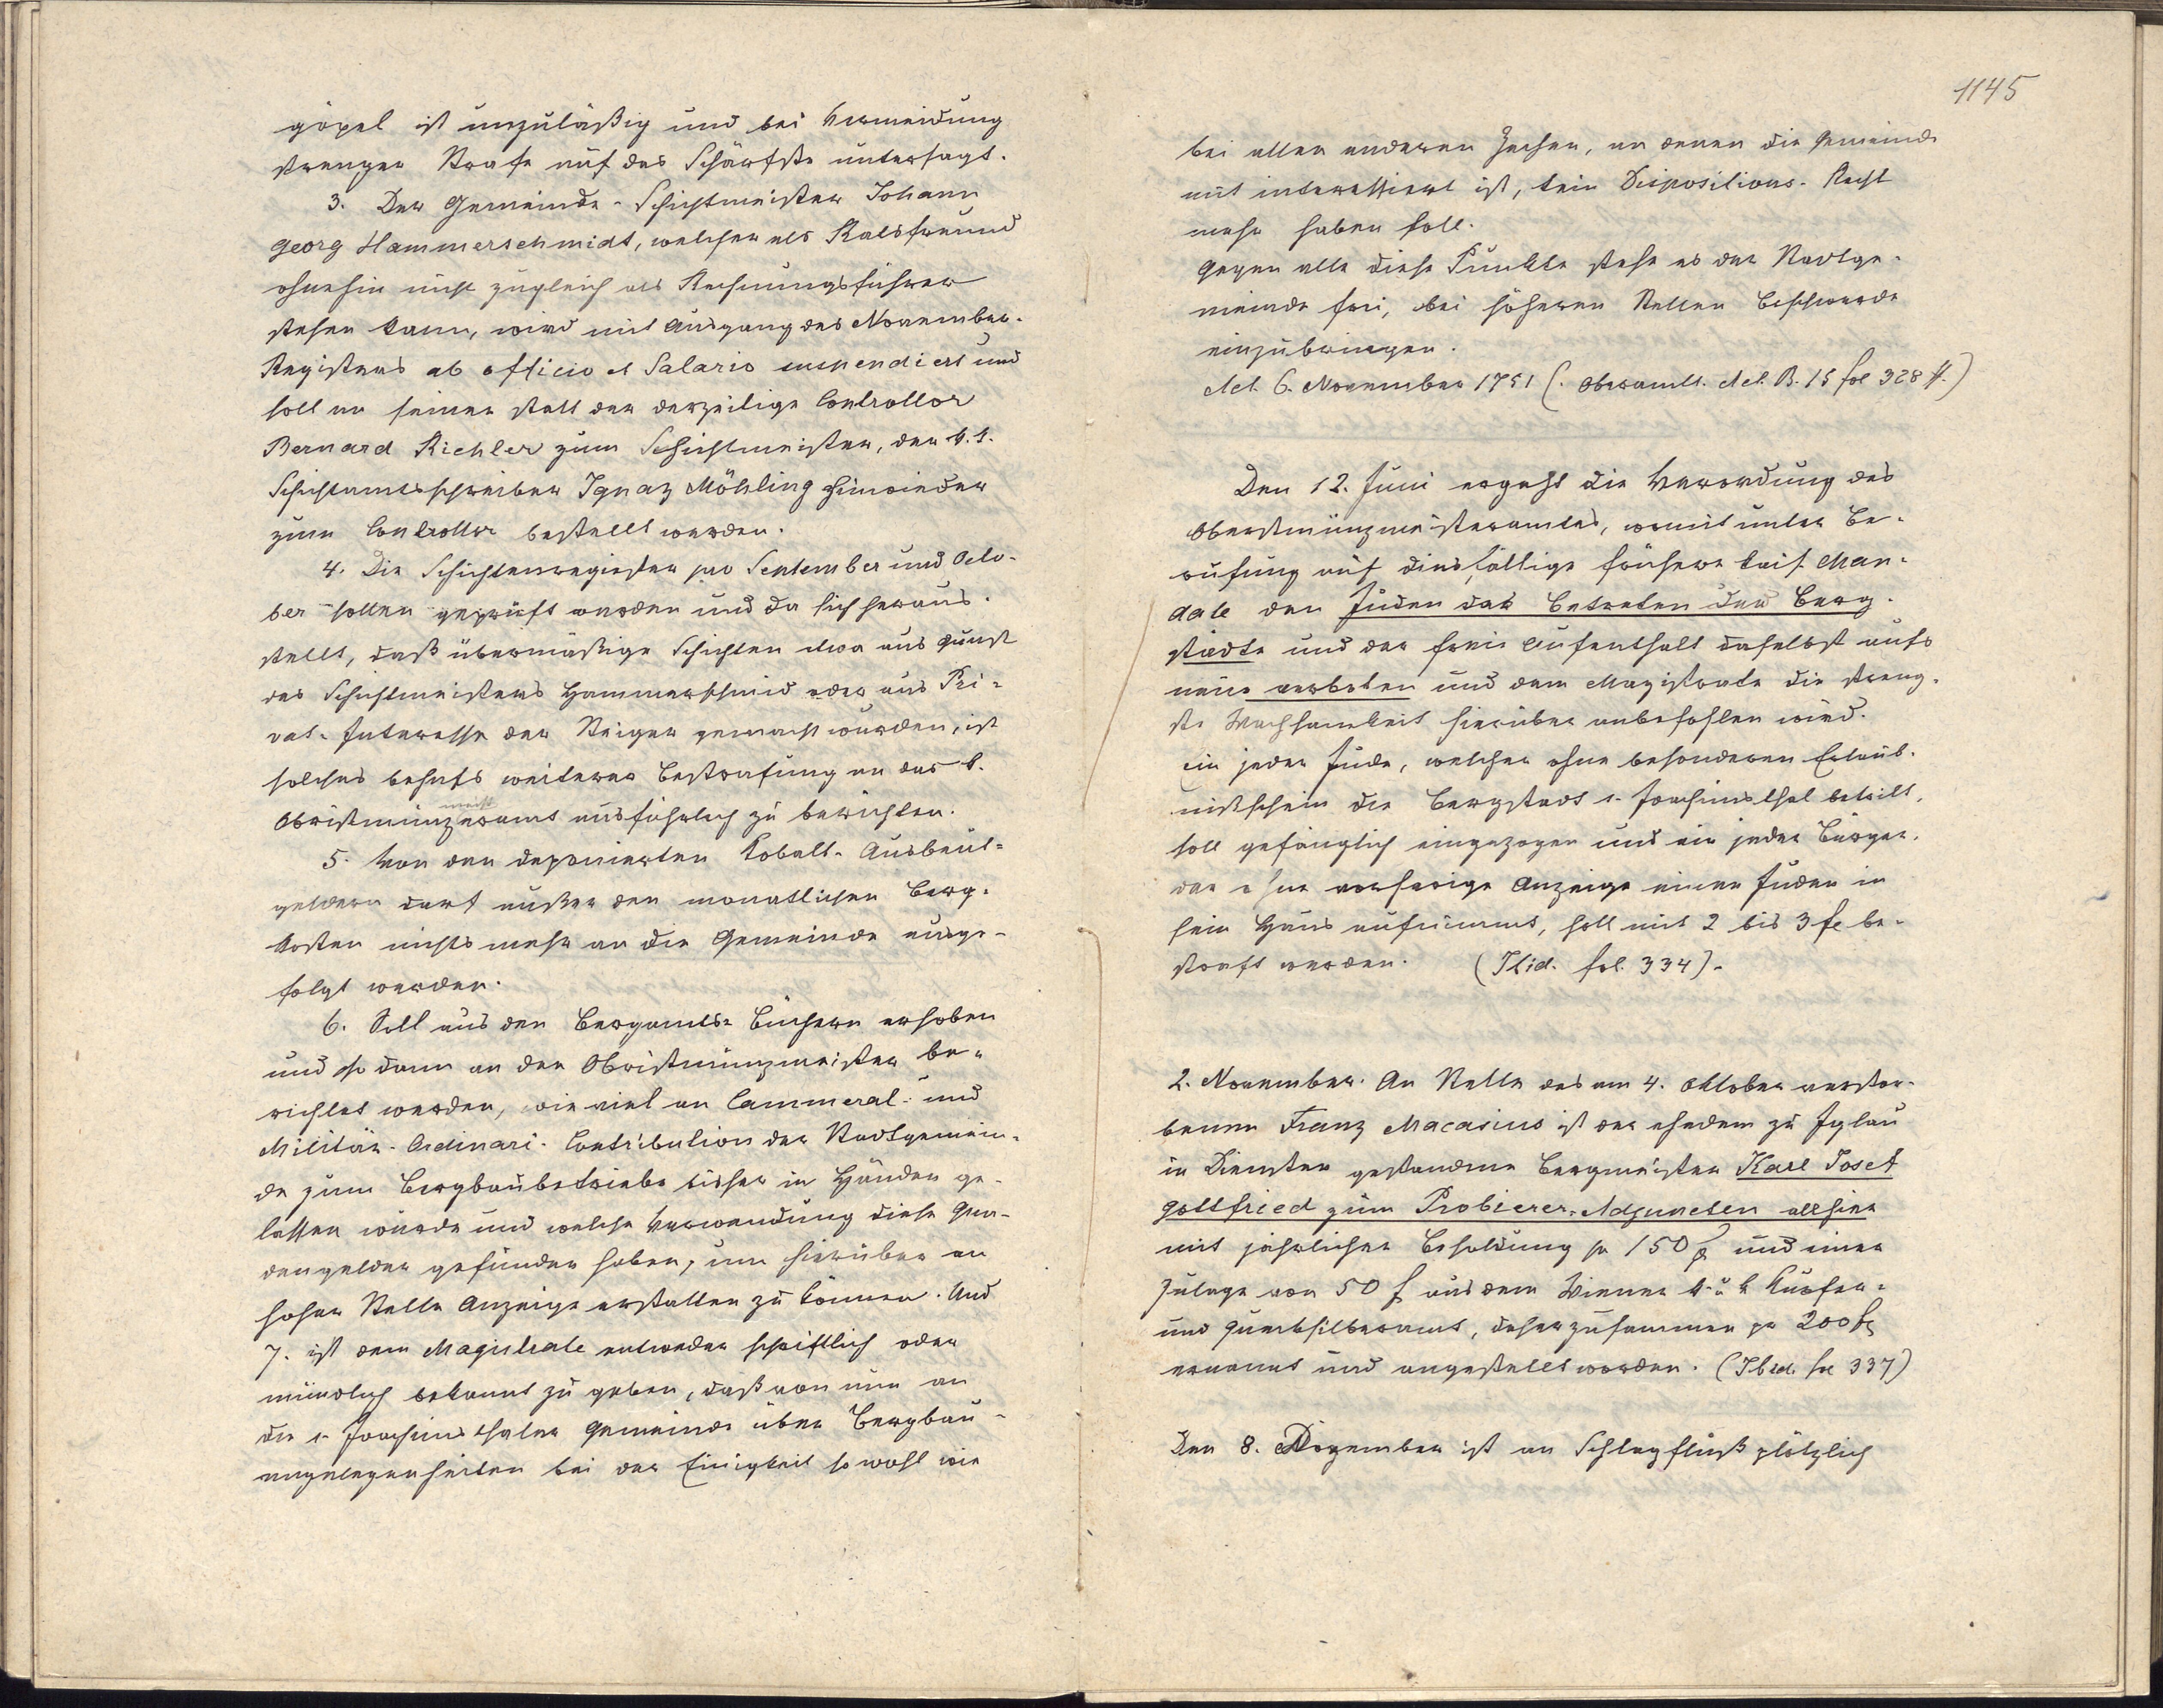 göpel ist unzuläßig und bei Vermeidung
strenger Strafe auf das Schärfste untersagt.
3. Der Gemeinde-Schichtmeister Johann
Georg Hammerschmidt, welcher als Ratsfreund
ohnehin nicht zugleich als Rechnungsführer
stehen kann, wird mit Ausgang des November-
Registers ab officio et Salario suspendiert und
soll an seiner statt der derzeitige Controllor
Bernard Richler zum Schichtmeister, der k. k.
Schichtamtsschreiber Ignaz Möhling hinwieder
zum Controllor bestellt werden.
4. Die Schichtenregister pro September und Octo-
ber sollen geprüft werden und da sich heraus-
stellt, daß übermäßige Schichten etwa aus Gunst
des Schichtmeisters Hammerschmid oder aus Pri-
vat-Interesse der Steiger gemacht wurden, ist
solches behufs weiterer Bestrafung an das k.
Obristmünzmeisteramt ausführlich zu berichten.
5. Von den deponierten Kobalt-Ausbeut-
geldern darf außer den monatlichen Berg-
kosten nichts mehr an die Gemeinde ausge-
folgt werden.
6. Soll aus den Bergamts-Büchern erhoben
und so dann an den Obristmünzmeister be-
richtet werden, wie viel an Cammeral- und
Militär-Ordinari-Contribution der Stadtgemein-
de zum Bergbaubetriebe bisher in Händen ge-
lassen wurde und welche Verwendung diese Gna-
dengelder gefunden haben, um hierüber an
hoher Stelle Anzeige erstatten zu können. Und
7. ist dem Magistrate entweder schriftlich oder
mündlich bekannt zu geben, daß von nun an
die s. Joachimsthaler Gemeinde über Bergbau-
angelegenheiten bei der Einigkeit sowohl wie
1145
bei allen anderen Zechen, an denen die Gemeinde
mit interessiert ist, kein Dispositions-Recht
mehr haben soll.
Gegen alle diese Punkte stehe es der Stadtge-
meinde frei, bei höheren Stellen Beschwerde
einzubringen.
Act. 6. November 1751 (. Oberamts. Act. B. 15 fol 328 ff.)
Den 12. Juni ergeht die Verordnung des
Oberstmünzmeisteramtes, womit unter Be-
rufung auf diesfällige frühere kais. Man-
date den Juden das Betreten der Berg-
städte und der freie Aufenthalt daselbst aufs
neue verboten und dem Magistrate die streng-
ste Wachsamkeit hierüber anbefohlen wird.
Ein jeder Jude, welcher ohne besonderen Erlaub-
nisschein die Bergstadt s. Joachimsthal betritt,
soll gefänglich eingezogen und ein jeder Bürger,
der ohne vorherige Anzeige einen Juden in
sein Haus aufnimmt, soll mit 2 bis 3 fl be-
straft werden. (Ibid. fol. 334).
2. November. An Stelle des am 4. Oktober verstor-
benen Franz Macasius ist der ehedem zu Iglau
in Diensten gestandene Bergmeister Karl Josef
Gottfried zum Probierer-Adjuncten allhier
mit jährlicher Besoldung pr 150 fl und einer
Zulage von 50 f aus dem Wiener k. u k Kupfer-
und Quecksilberamt, daher zusammen pr 200 fl
ernannt und angestellt worden. (Ibid. fol 337)
Den 8. Dezember ist an Schlagfluß plötzlich